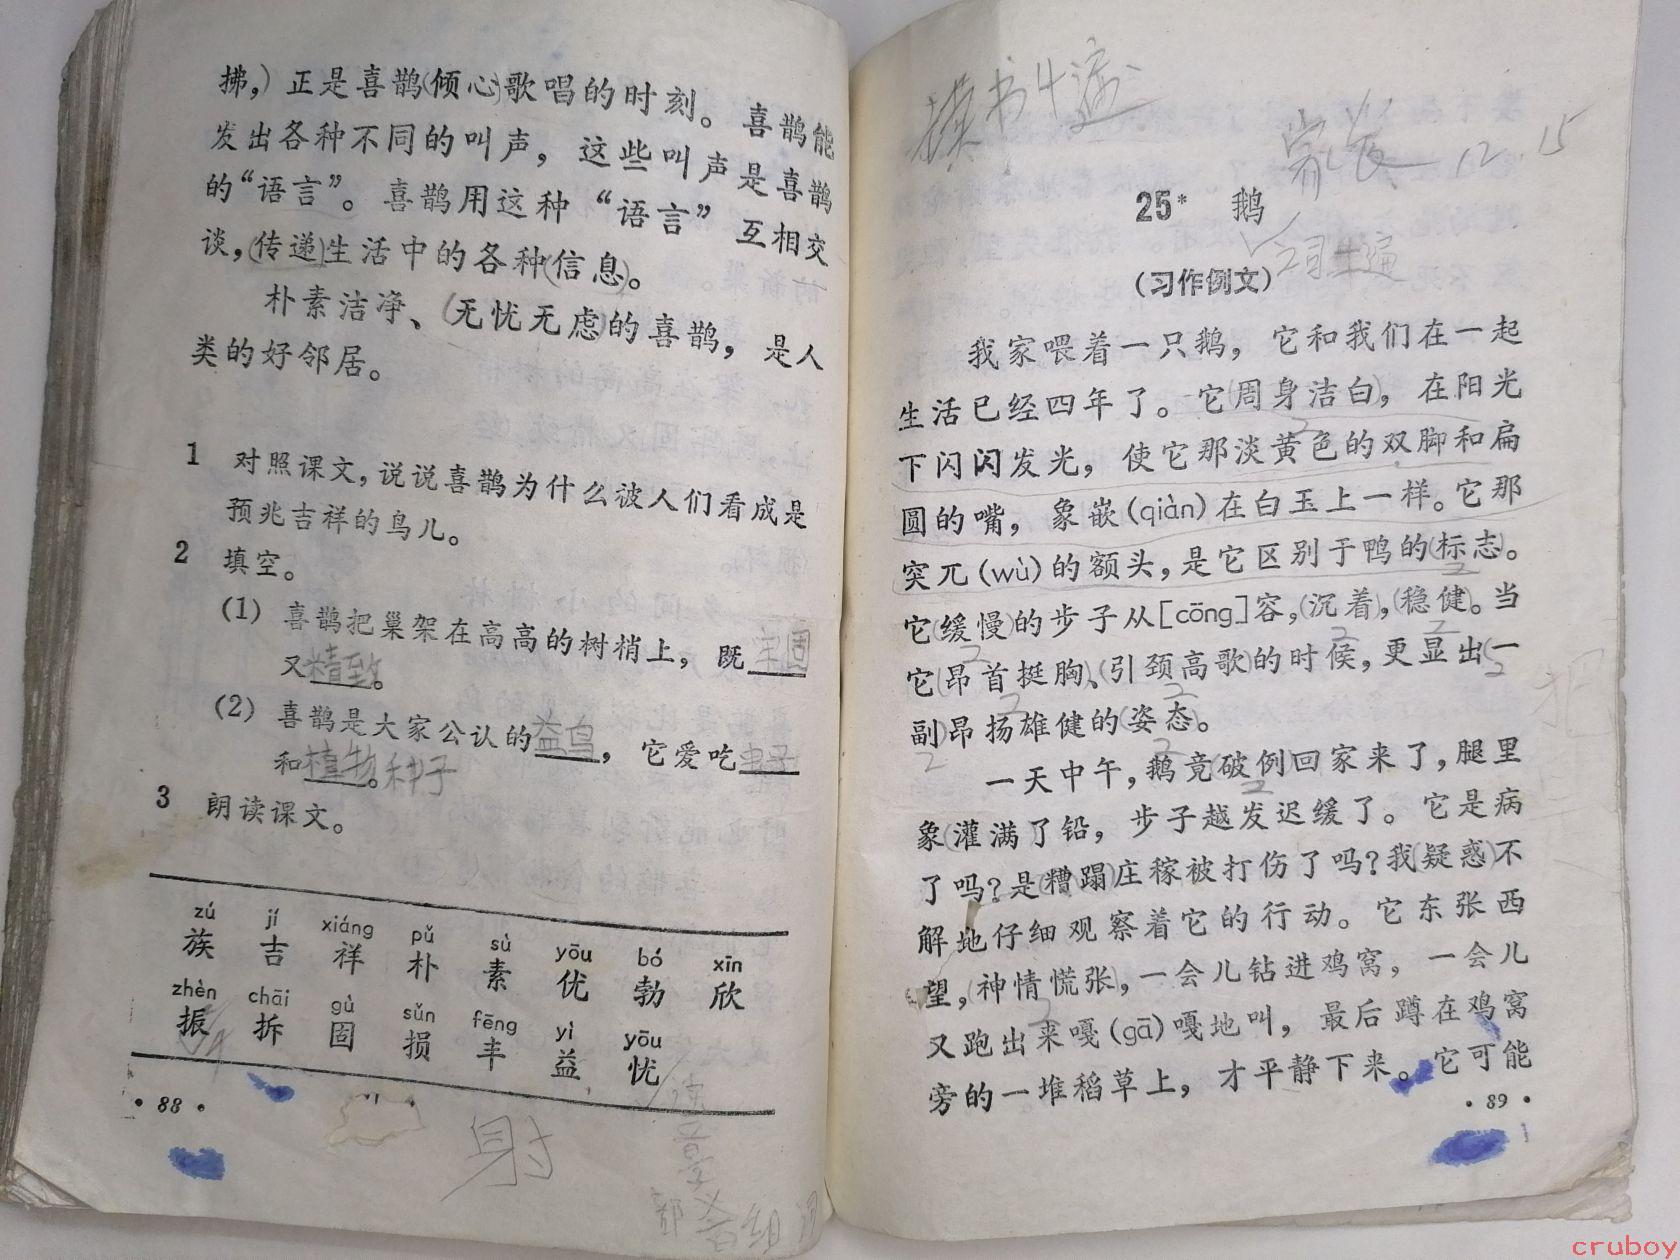 拂，）正是喜鹊（倾心）歌唱的时刻。喜鹊能
发出各种不同的叫声，这些叫声是喜鹊
的“语言”。喜鹊用这种“语言”互相交
谈，（传递）生活中的各种（信息）。
朴素洁净、（无忧无虑）的喜鹊，是人
类的好邻居。
1 对照课文，说说喜鹊为什么被人们看成是
预兆吉祥的鸟儿。
2 填空。
(1) 喜鹊把巢架在高高的树梢上，既牢固
又精致。
(2) 喜鹊是大家公认的益鸟，它爱吃虫子
和植物。种子
3 朗读课文。
zú jí xiáng pǔ sù yōu bó xīn
族 吉 祥 朴 素 优 勃 欣
zhèn chāi gù sǔn fēng yì yōu
振 拆 固 损 丰 益 忧
·88·
射
读书4遍
家长 12.15
25* 鹅
(习作例文)
我家喂着一只鹅，它和我们在一起
生活已经四年了。它（周身洁白），在阳光
下闪闪发光，使它那淡黄色的双脚和扁
圆的嘴，象嵌(qiàn)在白玉上一样。它那
突兀(wù)的额头，是它区别于鸭的（标志）。
它（缓慢）的步子从[cōng]容，（沉着），（稳健）。当
它（昂首挺胸）、（引颈高歌）的时候，更显出（一
副）昂扬雄健的（姿态）。
一天中午，鹅竟（破例）回家来了，腿里
象（灌满了铅，步子越发迟缓了。它是病
了吗？是（糟蹋）庄稼被打伤了吗？我（疑惑）不
解地仔细观察着它的行动。它东张西
望，（神情慌张），一会儿钻进鸡窝，一会儿
又跑出来嘎(gā)嘎地叫，最后蹲在鸡窝
旁的一堆稻草上，才平静下来。它可能
·89·
cruboy